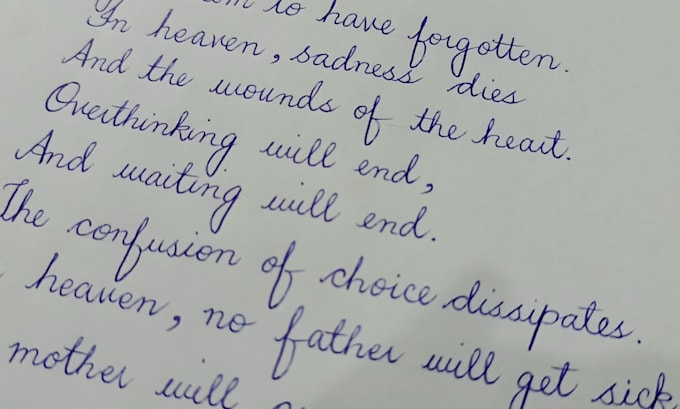 to have forgotten.
In heaven, sadness dies
And the wounds of the heart.
Overthinking will end,
And waiting will end.
The confusion of choice dissipates.
heaven, no father will get sick
mother will